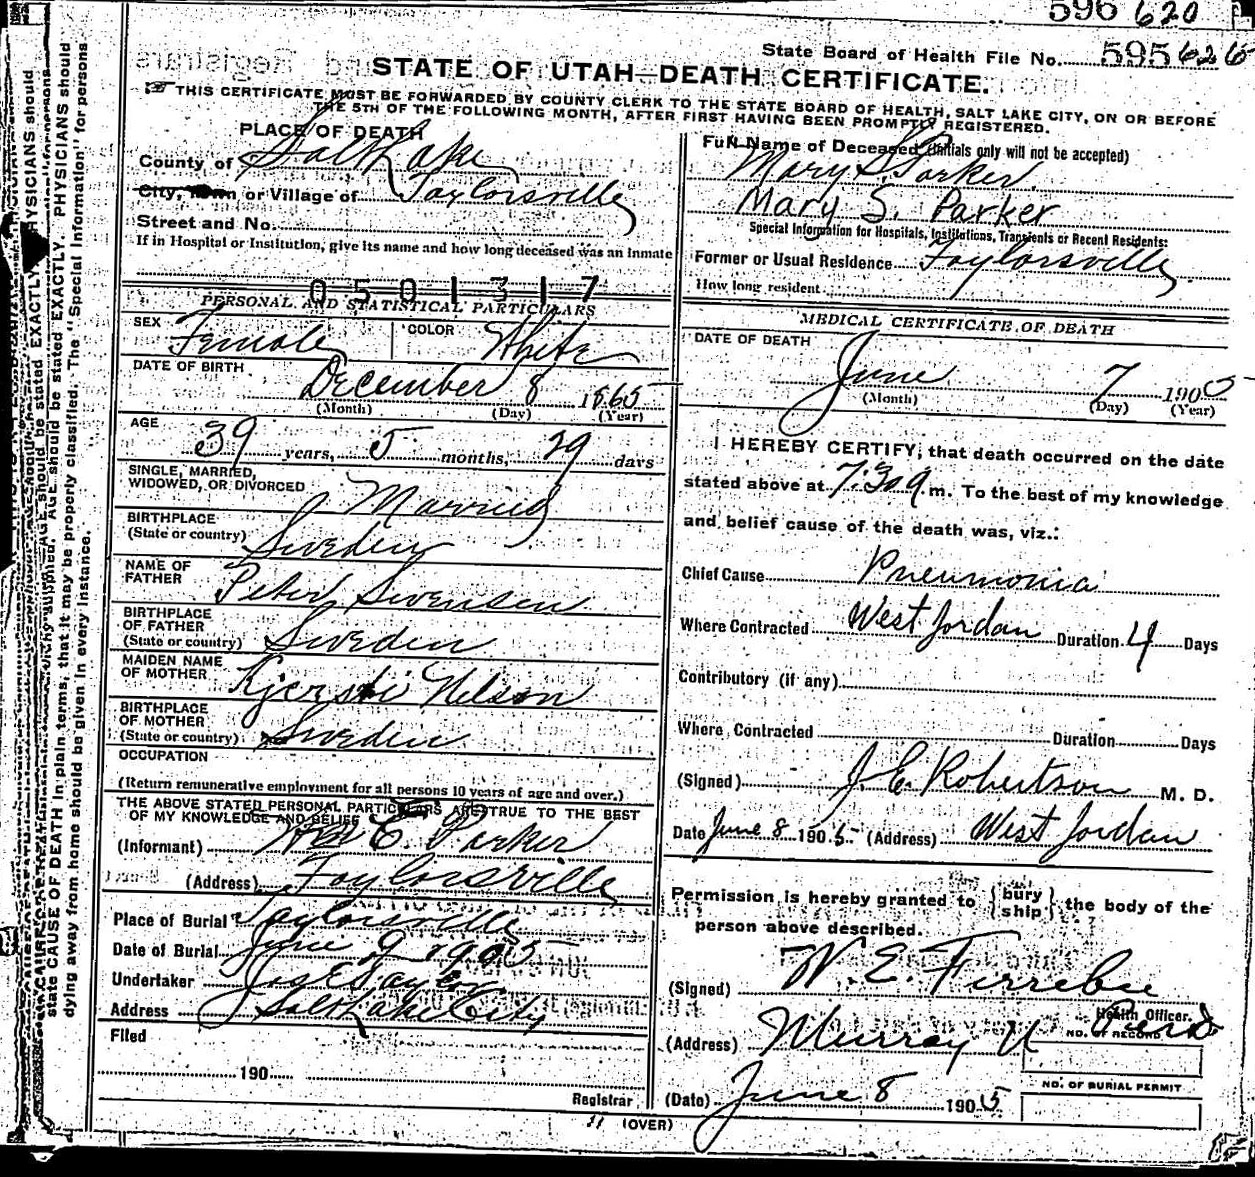 596 620
State Board of Health File No. 595 626
STATE OF UTAH—DEATH CERTIFICATE.
THIS CERTIFICATE MUST BE FORWARDED BY COUNTY CLERK TO THE STATE BOARD OF HEALTH, SALT LAKE CITY, ON OR BEFORE
THE 5TH OF THE FOLLOWING MONTH, AFTER FIRST HAVING BEEN PROMPTLY REGISTERED.
PLACE OF DEATH
County of Salt Lake
City, Town or Village of Taylorsville
Street and No.
If in Hospital or Institution, give its name and how long deceased was an inmate
0501317
PERSONAL AND STATISTICAL PARTICULARS
SEX Female COLOR White
DATE OF BIRTH
December 8 1865
(Month) (Day) (Year)
AGE
39 years, 5 months, 29 days
SINGLE, MARRIED,
WIDOWED, OR DIVORCED Married
BIRTHPLACE
(State or country) Sweden
NAME OF
FATHER Peter Swensen
BIRTHPLACE
OF FATHER
(State or country) Sweden
MAIDEN NAME
OF MOTHER Kjersti Nelson
BIRTHPLACE
OF MOTHER
(State or country) Sweden
OCCUPATION
(Return remunerative employment for all persons 10 years of age and over.)
THE ABOVE STATED PERSONAL PARTICULARS ARE TRUE TO THE BEST
OF MY KNOWLEDGE AND BELIEF
(Informant) E. Parker
(Address) Taylorsville
Place of Burial Taylorsville
Date of Burial June 9 1905
Undertaker Jos E Taylor
Address Salt Lake City
Filed
190
Registrar
Full Name of Deceased (Initials only will not be accepted)
Mary S. Parker
Mary S. Parker
Special Information for Hospitals, Institutions, Transients or Recent Residents:
Former or Usual Residence Taylorsville
How long resident
MEDICAL CERTIFICATE OF DEATH
DATE OF DEATH
June 7 1905
(Month) (Day) (Year)
I HEREBY CERTIFY, that death occurred on the date
stated above at 7:30 a m. To the best of my knowledge
and belief cause of the death was, viz.:
Chief Cause Pneumonia
Where Contracted West Jordan Duration 4 Days
Contributory (if any)
Where Contracted Duration Days
(Signed) J. E. Robertson M. D.
Date June 8 1905 (Address) West Jordan
Permission is hereby granted to {bury ship} the body of the
person above described.
(Signed) W. E. Ferrebee
Health Officer.
(Address) Murray U
NO. OF RECORD
NO. OF BURIAL PERMIT
(Date) June 8 1905
(OVER)
state CAUSE OF DEATH in plain terms, that it may be properly classified. The "Special Information" for persons
dying away from home should be given in every instance.